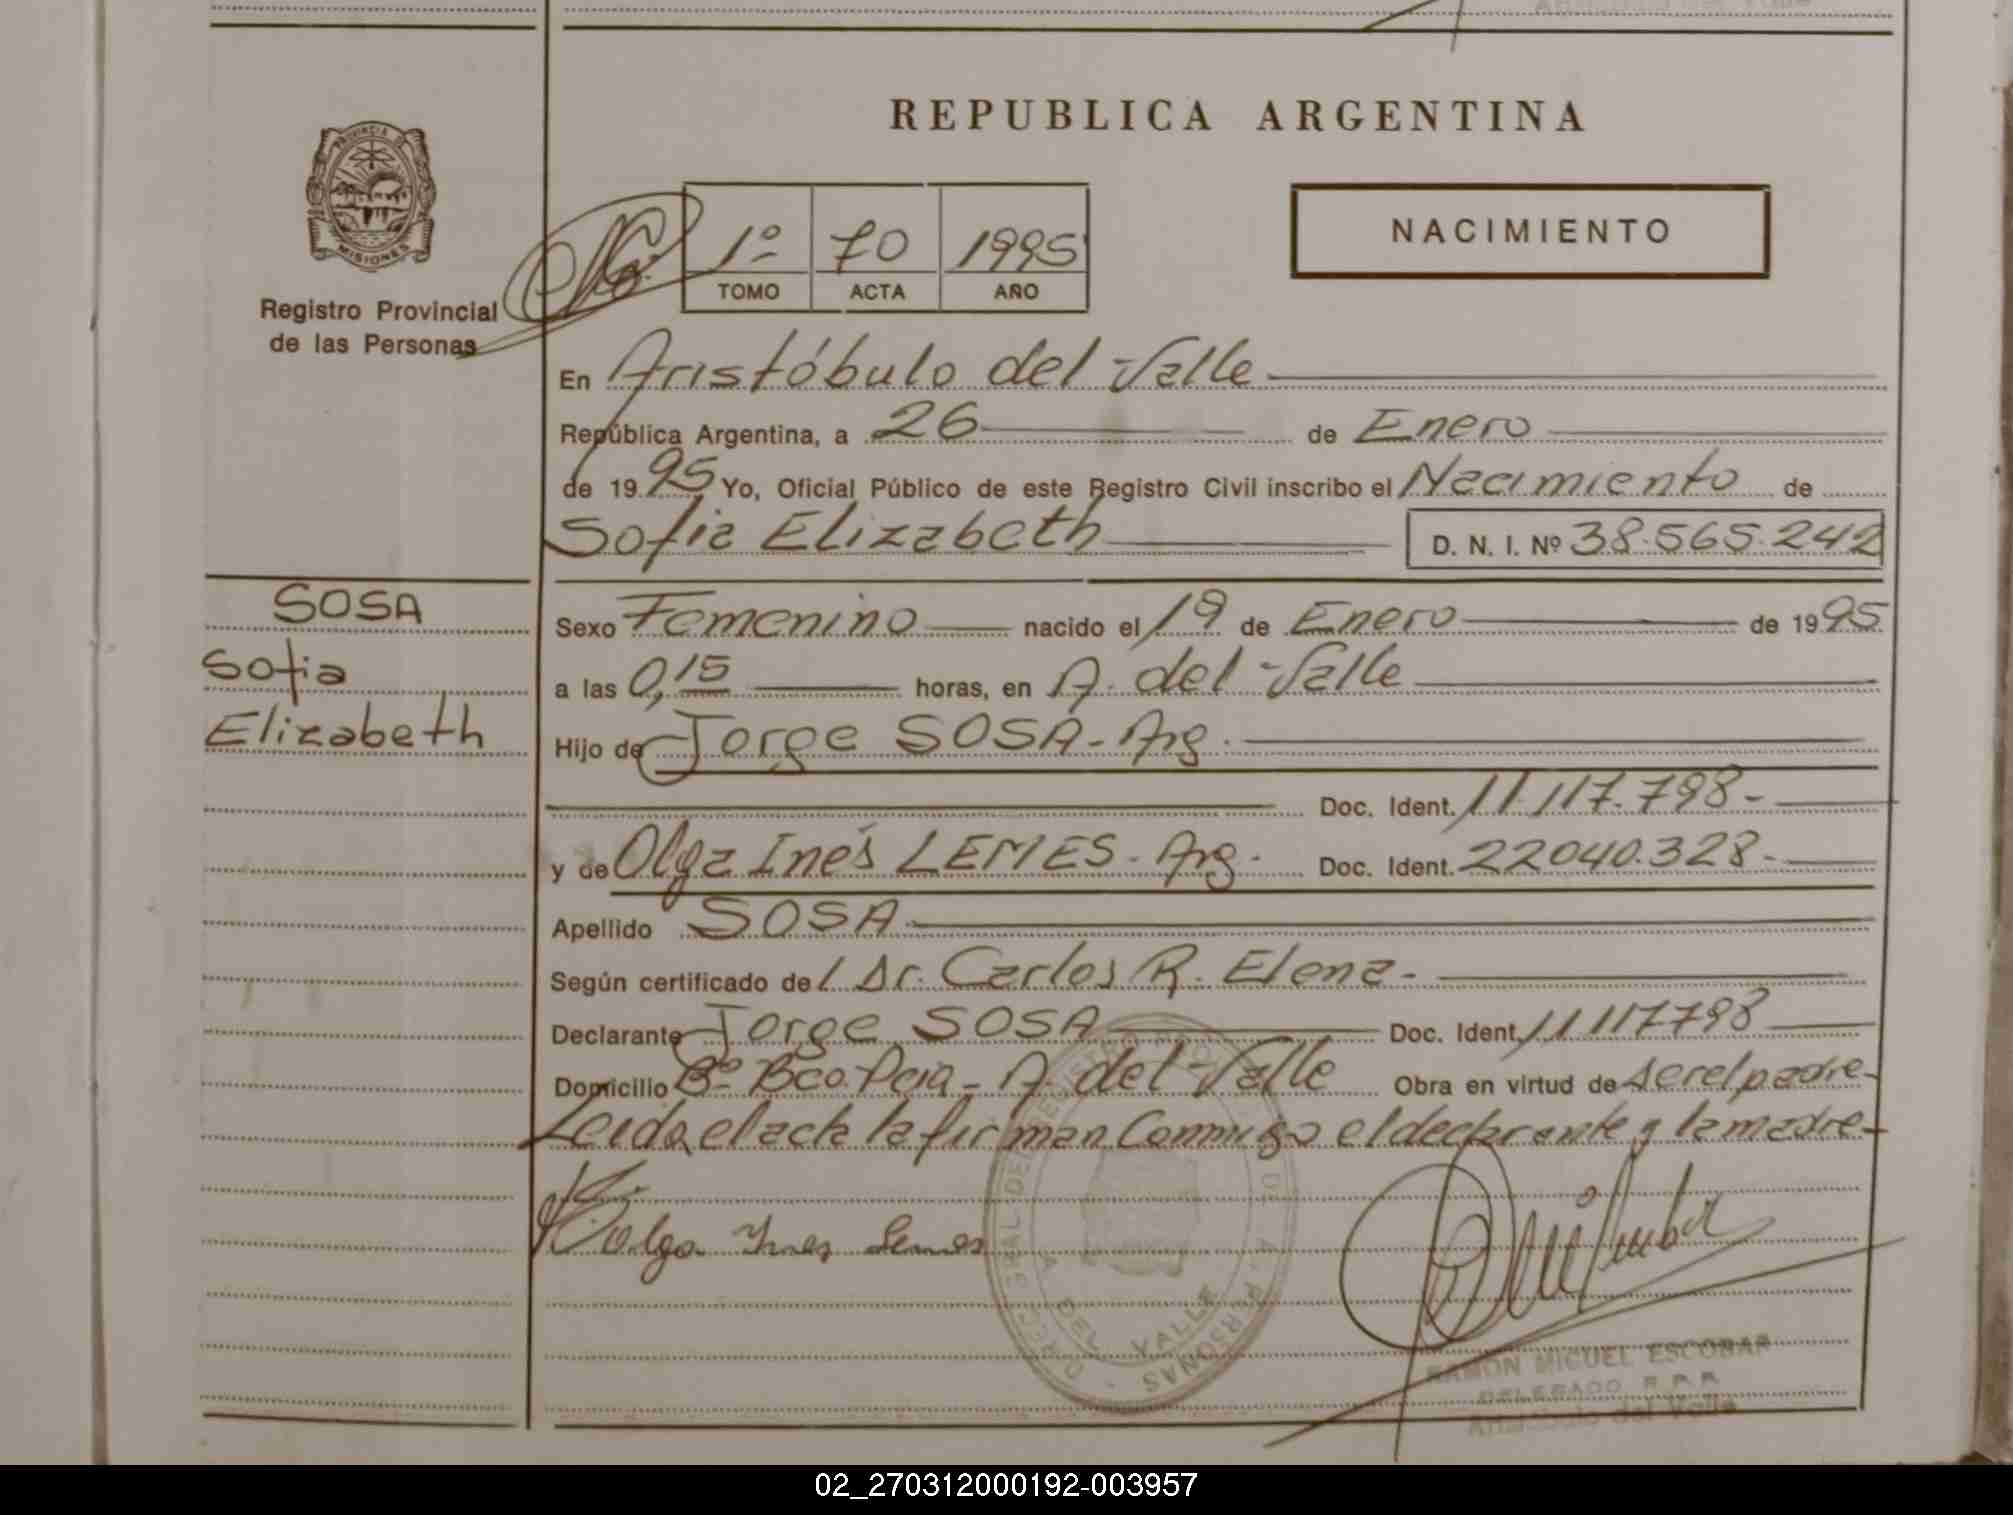 REPUBLICA ARGENTINA
PROVINCIA DE
MISIONES
Registro Provincial
de las Personas
1º 70 1995
TOMO ACTA AÑO
NACIMIENTO
En Aristóbulo del Valle
República Argentina, a 26 de Enero
de 1995 Yo, Oficial Público de este Registro Civil inscribo el Nacimiento de
Sofia Elizabeth D. N. I. Nº 38.565.242
SOSA
Sofia
Elizabeth
Sexo Femenino nacido el 19 de Enero de 1995
a las 0,15 horas, en A. del Valle
Hijo de Jorge SOSA - Arg.
Doc. Ident. 11.117.798-
y de Olga Inés LEMES - Arg. Doc. Ident. 22040.328-
Apellido SOSA
Según certificado del Dr. Carlos R. Elena-
Declarante Jorge SOSA Doc. Ident. 11117798
Domicilio Bº Bco. Pcia - A. del Valle Obra en virtud de ser el padre-
Leida el acta la firman Conmigo el declarante y la madre-
Olga Ynes Lemes
A. DEL VALLE
RAMON MIGUEL ESCOBAR
DELEGADO R.P.P.
Aristóbulo del Valle
02_270312000192-003957